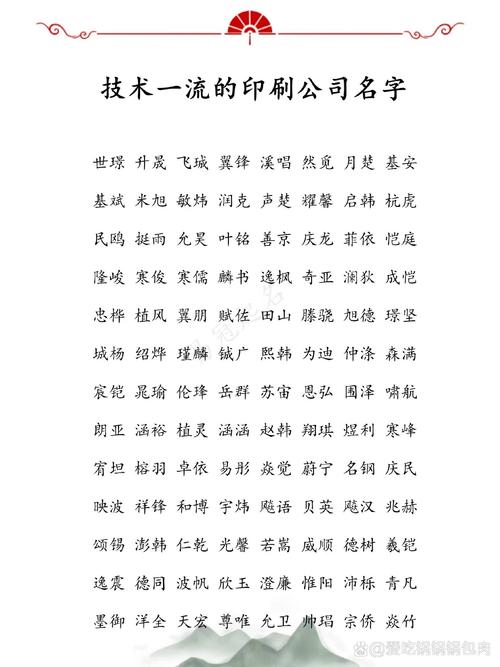 技术一流的印刷公司名字
世璟 升晟 飞珹 翼锋 溪唱 然觅 月楚 基安
基斌 米旭 敏炜 润克 声楚 耀馨 启韩 杭虎
民鸥 挺雨 允昊 叶铭 善京 庆龙 菲依 恺庭
隆峻 寒俊 寒儒 麟书 逸枫 奇亚 澜狄 成恺
忠桦 植风 翼朋 赋佐 田山 滕骁 旭德 璟坚
城杨 绍烨 瑾麟 铖广 熙韩 为迪 仲涤 森满
宸铠 晁瑜 伦琒 岳群 苏宙 恩弘 围泽 啸航
朗亚 涵裕 植灵 涵涵 赵韩 翔琪 煜利 寒峰
宥坦 榕羽 卓依 易彤 焱觉 蔚宁 名钢 庆民
映波 祥锋 和博 宇炜 飚语 贝英 飚汉 兆赫
颂锡 澎韩 仁乾 光馨 若嵩 威顺 德树 羲铠
逸震 德同 波帆 欣玉 澄廉 惟阳 沛栎 青凡
墨御 洋全 天宏 尊唯 允卫 帅琩 宗侨 焱竹
冠 名
@爱吃锅锅锅包肉